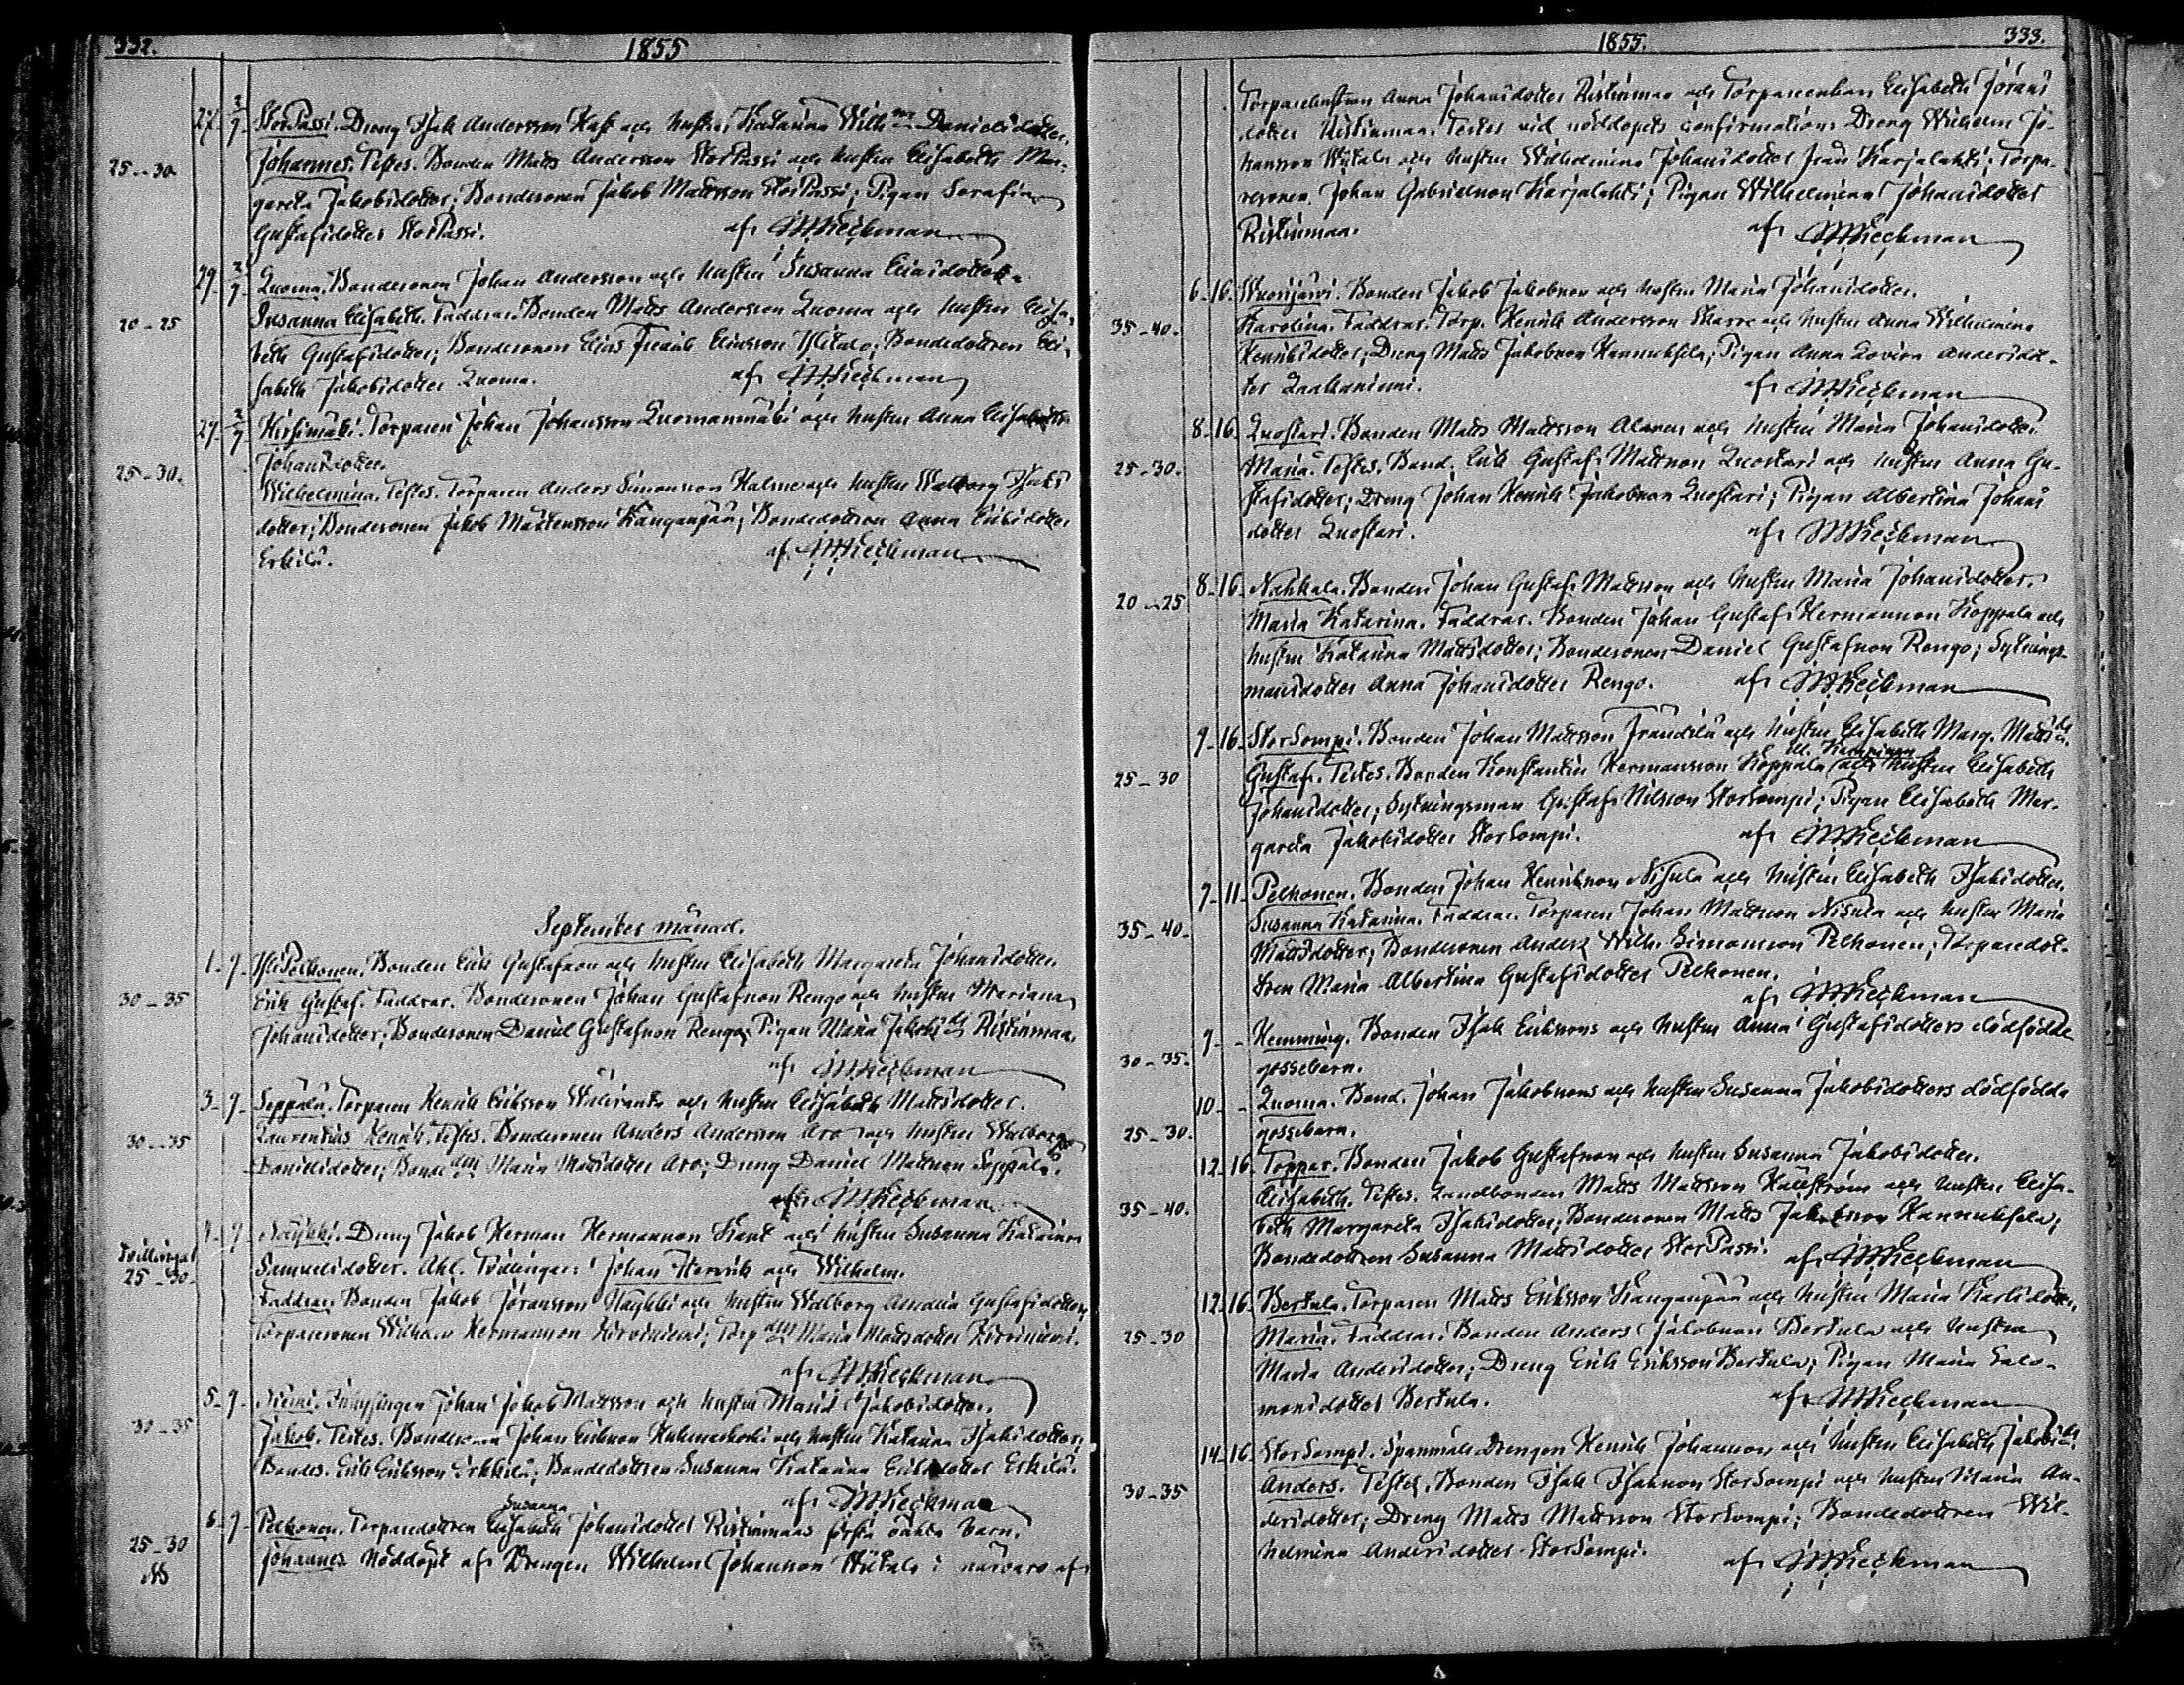 332.
1855
27 2/9 StorPassi. Dreng Isak Andersson Kask och hustru Katarina Wilh:na Danielsdotter.
25--30. Johannes. Testes. Bonden Matts Andersson StorPassi och hustru Elisabeth Mar-
gareta Jakobsdotter; Bondesonen Jakob Mattsson StorPassi; Pigan Serafina
Gustafsdotter StorPassi. af JWKeckman
29 2/9 Luoma. Bondesonen Johan Andersson och hustru Susanna Eliasdotter.
20-25 Susanna Elisabeth. Faddrar. Bonden Matts Andersson Luoma och hustru Elisa-
beth Gustafsdotter; Bondesonen Elias Fredrik Eliasson Ylitalo; Bondedottren Eli-
sabeth Jakobsdotter Luoma. af JWKeckman
27 2/9 Hirsimäki. Torparen Johan Johansson Luomanmäki och hustru Anna Elisabeth
Johansdotter.
25-30. Wilhelmina. Testes. Torparen Anders Simonsson Halme och hustru Walborg Isaks
dotter; Bondesonen Jakob Mårtensson Kanganpää; Bondedottren Anna Eriksdotter
Erkilä. af JWKeckman
September månad.
1-9- YliPelkonen. Bonden Erik Gustafsson och hustru Elisabeth Margareta Johansdotter.
30-35 Erik Gustaf. Faddrar. Bondesonen Johan Gustafsson Rengo och hustru Mariana
Johansdotter; Bondesonen Daniel Gustafsson Rengo; Pigan Maria Jakobsdr Ristinmaa.
af JWKeckman
3-9- Seppälä. Torparen Henrik Eriksson och hustru Elisabeth Mattsdotter.
30-35 Laurentius Henrik. Testes. Bondesonen Anders Andersson Aro och hustru Walborg
Danielsdotter; Bonde Maria Mattsdotter Aro; Dreng Daniel Mattsson Seppälä.
af JWKeckman
4-9 Näykki. Dreng Jakob Herman Hermansson Kant och hustru Susanna Katarina
Tvillingar 25-30. Samuelsdotter. Tvillingar: Johan Henrik och Wilhelm.
Faddrar: Bonden Jakob Göransson Näykki och hustru Walborg Amalia Gustafsdotter,
Torparesonen Wilhelm Hermansson Hirviniemi; Torp Maria Mattsdotter Hirviniemi.
af JWKeckman
5-9- Niemi. Inhysingen Johan Jakob Mattsson och hustru Maria Jakobsdotter.
30-35 Jakob. Testes. Bondesonen Johan Eriksson Kuhmaskoski och hustru Katarina Isaksdotter;
Bondes. Erik Eriksson Erkkilä; Bondedottren Susanna Katarina Eriksdotter Erkilä.
af JWKeckman
Susanna
6-9- Pelkonen. Torparedottren Elisabeth Johansdotter Ristinmaas första oäkta barn.
25-30 Johannes Nöddöpt af Drengen Wilhelm Johansson Wiitala i närvaro af
1855.
333.
Torparehustrun Anna Johansdotter Ristinmaa och Torpareenkan Elisabeth Görans
dotter Ristinmaa. Testes vid nöddopets confirmation: Dreng Wilhelm Jo-
hansson Wiitala och hustru Wilhelmina Johansdotter från Karjalahti; Torpa-
resonen Johan Gabrielsson Karjalahti; Pigan Wilhelmina Johansdotter
Ristinmaa. af JWKeckman
6-16. Wuorijärvi. Bonden Jakob Jakobsson och hustru Maria Johansdotter.
35-40. Karolina. Faddrar. Torp. Henrik Andersson Skarre och hustru Anna Wilhelmina
Henriksdotter; Dreng Matts Jakobsson Hannuksela; Pigan Anna Lovisa Andersdot-
ter Laakaniemi. af JWKeckman
8-16. Luostari. Bonden Matts Mattsson Alanen och hustru Maria Johansdotter.
25-30. Maria. Testes. Bond. Erik Gustaf Mattsson Luostari och hustru Anna Gu-
stafsdotter; Dreng Johan Henrik Jakobsson Luostari; Pigan Albertina Johans
dotter Luostari. af JWKeckman
8-16 Nahkala. Bonden Johan Gustaf Mattsson och hustru Maria Johansdotter.
20-25 Maria Katarina. Faddrar. Bonden Johan Gustaf Hermansson Koppala och
hustru Katarina Mattsdotter; Bondesonen Daniel Gustafsson Rengo; Sytnings-
mansdotter Anna Johansdotter Rengo. af JWKeckman
9-16- StorSompi. Bonden Johan Mattsson Frändilä och hustru Elisabeth Marg. Mattsdr.
25-30 Gustaf. Testes. Bonden Konstantin Hermansson Koppala och hustru Elisabeth
Johansdotter; Sytningsman Gustaf Nilsson StorSompi; Pigan Elisabeth Mar-
gareta Jakobsdotter StorSompi. af JWKeckman
9-11- Pelkonen. Bonden Johan Henriksson Nisula och hustru Elisabeth Isaksdotter.
35-40- Susanna Katarina. Faddrar. Torparen Johan Mattsson Nisula och hustru Maria
Mattsdotter; Bondesonen Anders Wilh. Simonsson Pelkonen; Torparedot-
tren Maria Albertina Gustafsdotter Pelkonen.
af JWKeckman
9- - Hemming. Bonden Isak Erikssons och hustru Anna Gustafsdotters dödfödde
30-35. gossebarn.
10- - Luoma. Bond. Johan Jakobssons och hustru Susanna Jakobsdotters dödfödda
25-30. gossebarn.
12-16 Toppar. Bonden Jakob Gustafsson och hustru Susanna Jakobsdotter.
35-40. Elisabeth. Testes. Landbonden Matts Mattsson Källström och hustru Elisa-
beth Margareta Isaksdotter; Bondesonen Matts Jakobsson Hannuksela;
Bondedottren Susanna Mattsdotter StorPassi. af JWKeckman
12-16. Bertula. Torparen Matts Eriksson Kanganpää och hustru Maria Karlsdotter.
25-30 Maria. Faddrar. Bonden Anders Jakobsson Bertula och hustru
Maria Andersdotter; Dreng Erik Eriksson Bertula; Pigan Maria Salo-
monsdotter Bertula. af JWKeckman
14-16 StorSompi. Spannmåls Drengen Henrik Johansson och hustru Elisabeth Jakobsdr.
30-35 Anders. Testes. Bonden Isak Isaksson StorSompi och hustru Maria An-
dersdotter; Dreng Matts Mattsson StorSompi; Bondedottren Wil-
helmina Andersdotter StorSompi. af JWKeckman